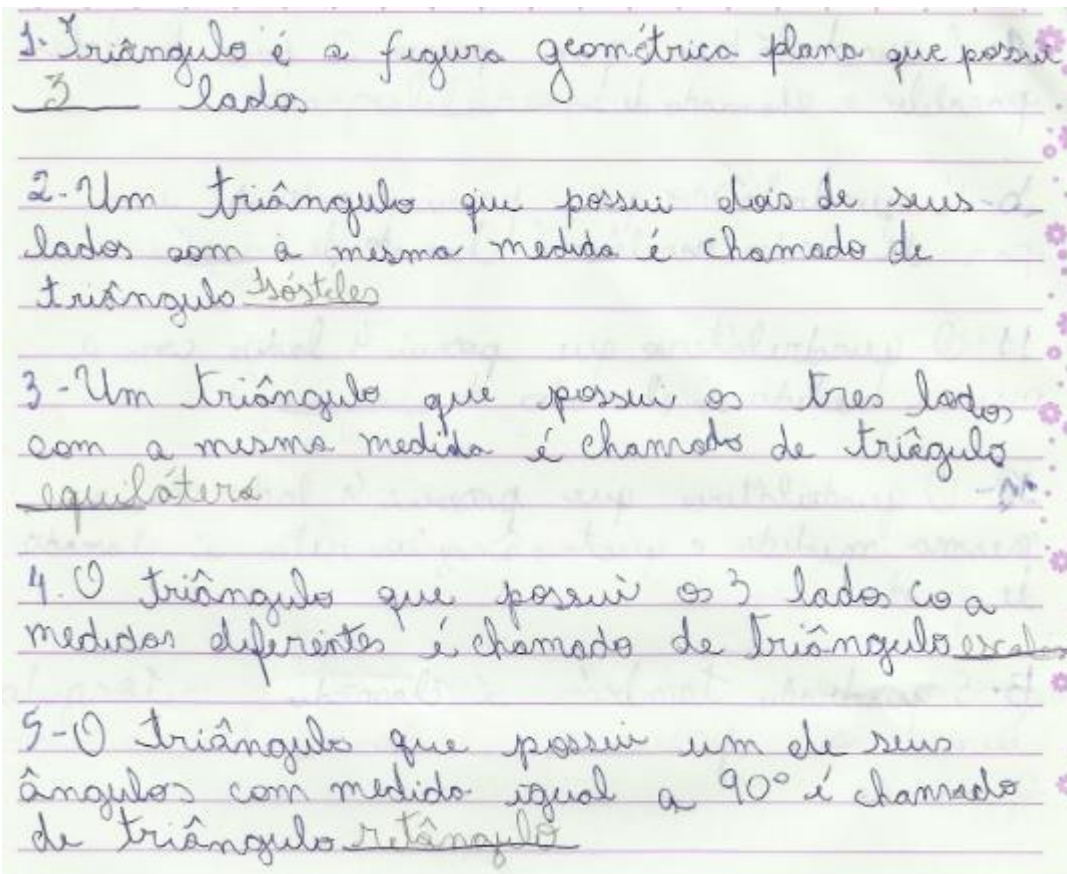 1- Triângulo é a figura geométrica plana que possui
3 lados
2- Um triângulo que possui dois de seus
lados com a mesma medida é chamado de
triângulo Isósteles
3- Um triângulo que possui os tres lados
com a mesma medida é chamado de triâgulo
equilátero
4. O triângulo que possui os 3 lados co a
medidas diferentes é chamado de triângulo
5- O triângulo que possui um de seus
ângulos com medida igual a 90° é chamado
de triângulo retângulo